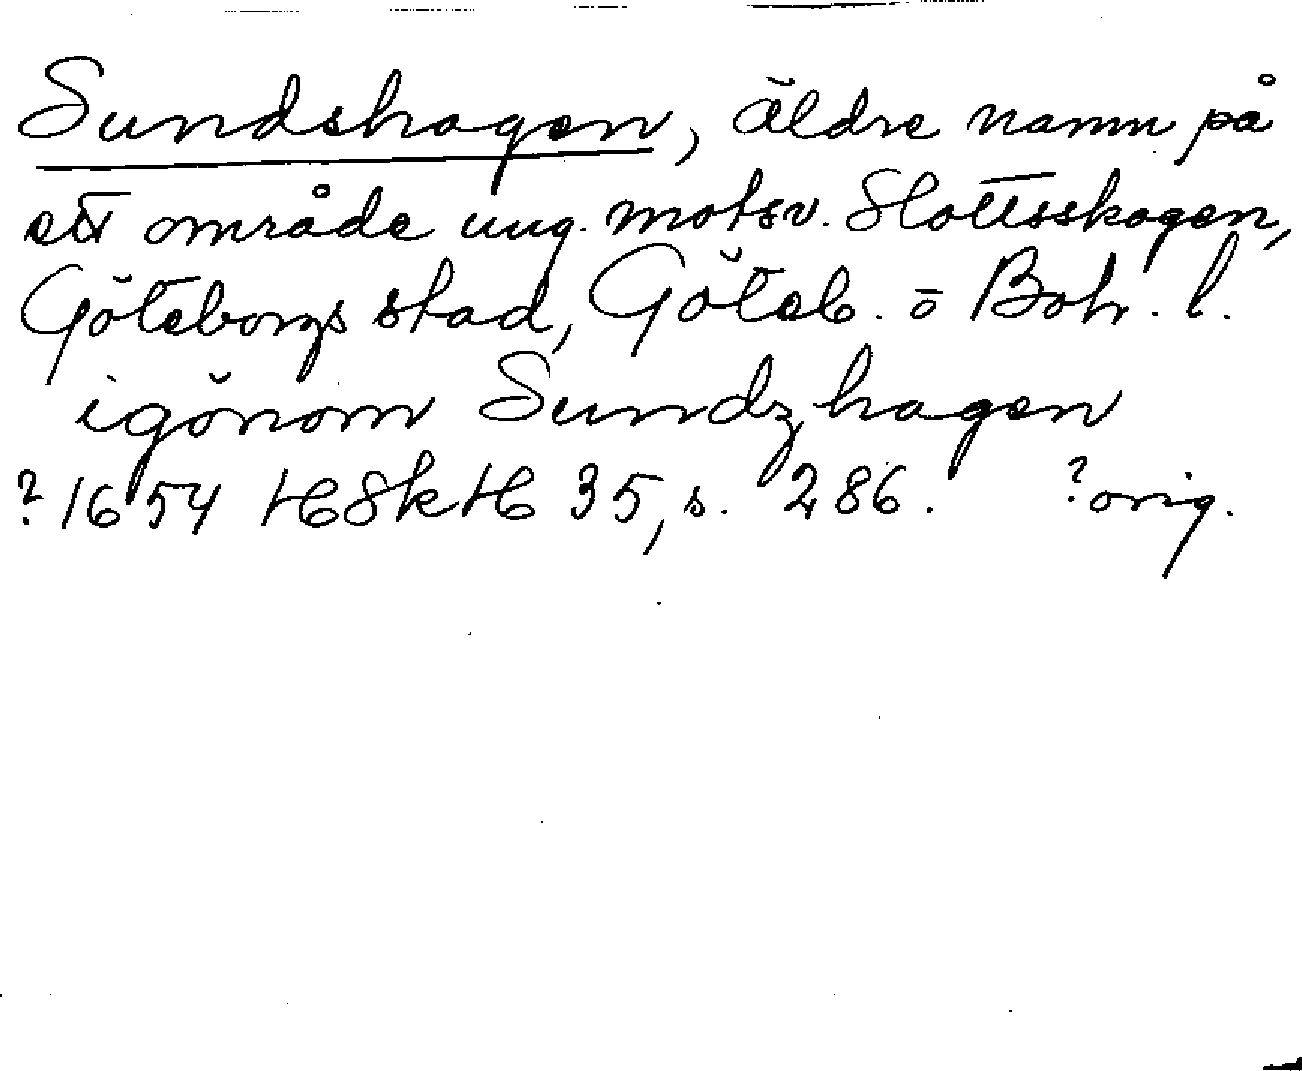 Sundshagen, äldre namn på
ett område ung. motsv. Slottsskogen,
Göteborgs stad, Göteb. o Boh. l.
igönom Sundzhagen
?1654 HSkH 35, s. 286. ?orig.